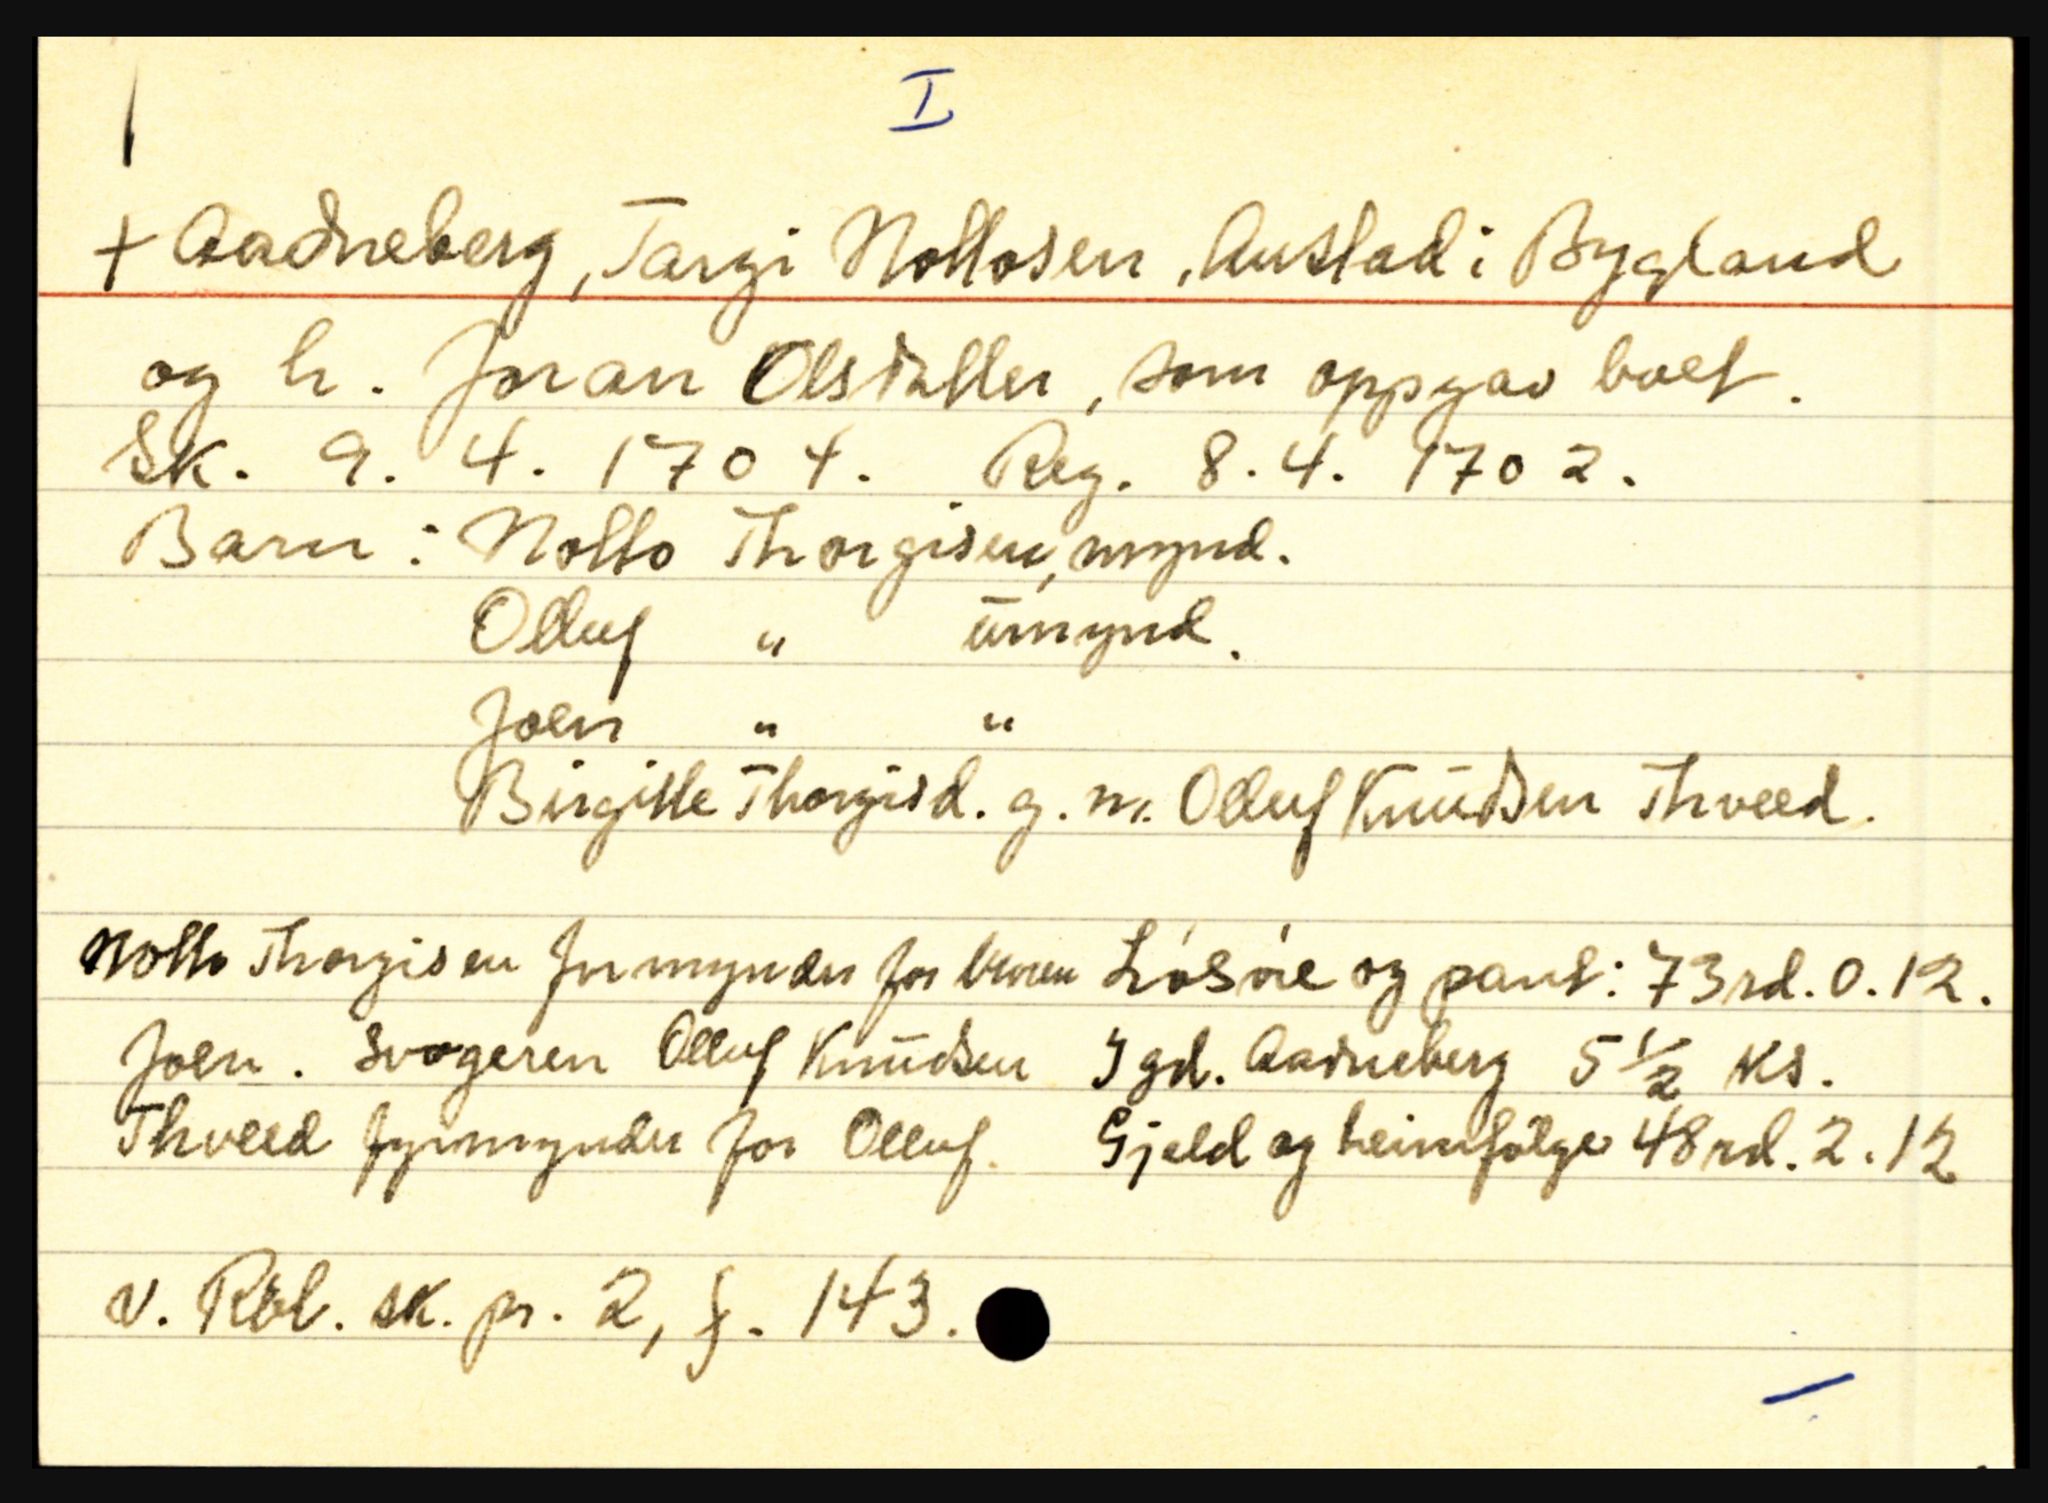 I
+ Aadneberg, Targi Nottosen, Austad i Bygland
og h. Joran Olsdatter, som oppgav boet.
Sk. 9. 4. 1704. Reg. 8. 4. 1702.
Barn: Notto Thorgisen, mynd.
Olluf " umynd.
Joen " "
Birgitte Thorgisd. g. m. Olluf Knudsen Thveed.
Notto Thorgisen formynder for broren Lósóre og pant: 73 rd. 0. 12.
Joen. Svogeren Olluf Knudsen I gd. Aadneberg 5 1/2 ks.
Thveed fyrmynder for Olluf. Gjeld og heimfölge 48 rd. 2. 12
v. Röb. sk. pr. 2, f. 143.